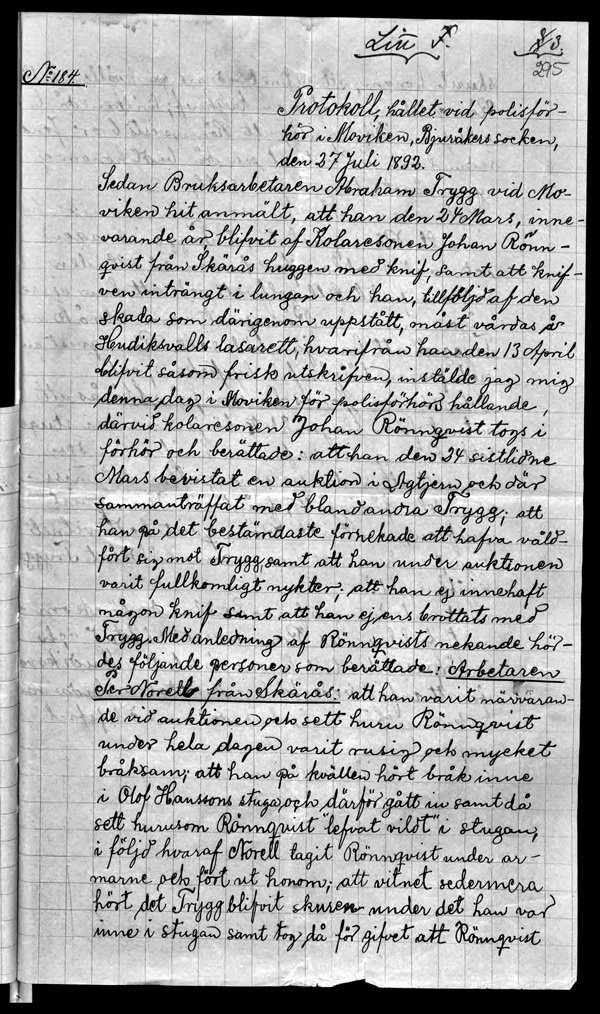 Litt F.
8/3.
295
No 184.
Protokoll, hållet vid polisför-
hör i Moviken, Bjuråkers socken,
den 27 Juli 1892.
Sedan Bruksarbetaren Abraham Trygg vid Mo-
viken hit anmält, att han den 24 Mars, inne-
varande år blifvit af Kolaresonen Johan Rönn-
qvist från Skärås huggen med knif, samt att knif-
ven inträngt i lungan och han, till följd af den
skada som därigenom uppstått, måst vårdas å
Hudiksvalls lasarett, hvarifrån han den 13 April
blifvit såsom frisk utskrifven, instälde jag mig
denna dag i Moviken för polisförhörs hållande,
därvid kolaresonen Johan Rönnqvist togs i
förhör och berättade: att han den 24 sistlidne
Mars bevistat en auktion i Agtjern och där
sammanträffat med bland andra Trygg; att
han på det bestämdaste förnekade att hafva våld-
fört sig mot Trygg, samt att han under auktionen
varit fullkomligt nykter; att han ej innehaft
någon knif samt att han ej ens brottats med
Trygg. Med anledning af Rönnqvists nekande hör-
des följande personer som berättade: Arbetaren
Per Norell från Skärås: att han varit närvaran-
de vid auktionen och sett huru Rönnqvist
under hela dagen varit rusig och mycket
bråksam; att han på kvällen hört bråk inne
i Olof Hanssons stuga, och därför gått in samt då
sett hurusom Rönnqvist "lefvat vildt" i stugan,
i följd hvaraf Norell tagit Rönnqvist under ar-
marne och fört ut honom; att vitnet sedermera
hört det Trygg blifvit skuren under det han var
inne i stugan samt tog då för gifvet att Rönnqvist